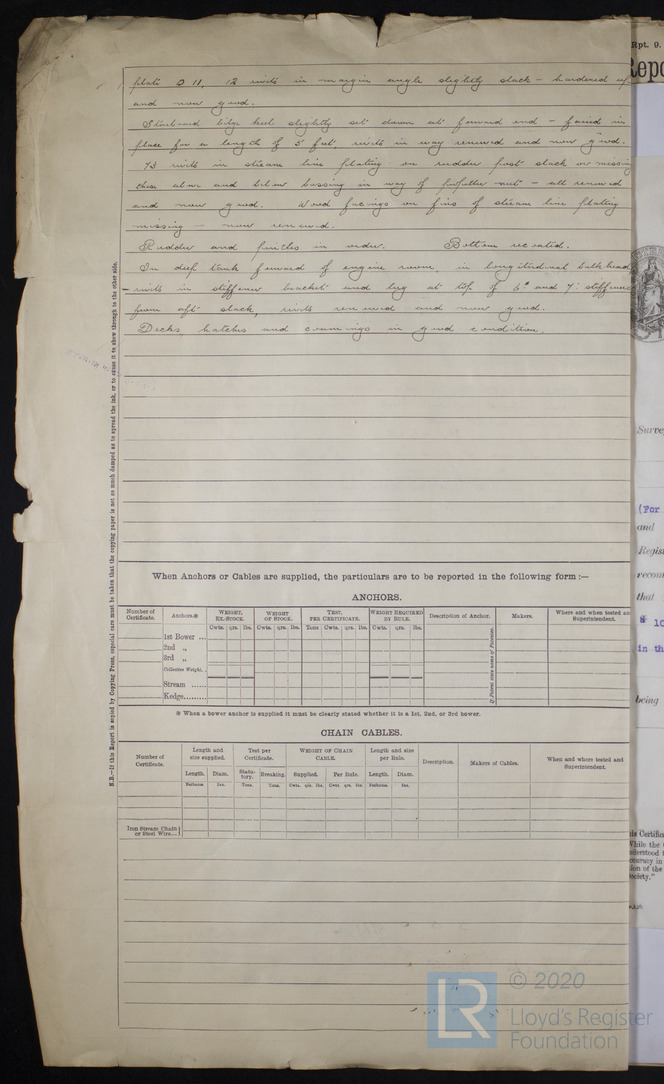 plate D 11, 12 rivets in margin angle slightly slack - hardened up
and now good.
Starboard bilge keel slightly set down at forward end - faired in
place for a length of 5 feet, rivets in way renewed and now good.
73 rivets in stream line plating on rudder post slack or missing
these above and below bossing in way of propeller nut - all renewed
and now good. Wood facings on fins of stream line plating
missing - now renewed.
Rudder and pintles in order. Bottom recoated.
In deep tank forward of engine room, in longitudinal bulkhead
rivets in stiffener bracket and lug at top of 6th and 7th stiffeners
from aft slack, rivets renewed and now good.
Decks hatches and coamings in good condition.
N.B.—If this Report is copied by Copying Press, especial care must be taken that the copying paper is not so much damped as to spread the ink, or to cause it to show through to the other side.
When Anchors or Cables are supplied, the particulars are to be reported in the following form :—
ANCHORS.
Number of Certificate. Anchors.* WEIGHT, EX-STOCK. WEIGHT OF STOCK. TEST, PER CERTIFICATE. WEIGHT REQUIRED BY RULE. Description of Anchor. Makers. Where and when tested and Superintendent.
Cwts. qrs. lbs. Cwts. qrs. lbs. Tons Cwts. qrs. lbs. Cwts. qrs. lbs.
1st Bower ...
2nd „
3rd „
Collective Weight.
Stream ......
Kedge.........
If Patent state name of Patentee.
* When a bower anchor is supplied it must be clearly stated whether it is a 1st, 2nd, or 3rd bower.
CHAIN CABLES.
Number of Certificate. Length and size supplied. Test per Certificate. WEIGHT OF CHAIN CABLE. Length and size per Rule. Description. Makers of Cables. When and where tested and Superintendent.
Length. Diam. Statutory. Breaking. Supplied. Per Rule. Length. Diam.
Fathoms. Ins. Tons. Tons. Cwts. qrs. lbs. Cwts. qrs. lbs. Fathoms. Ins.
Iron Stream Chain
or Steel Wire...
Rpt. 9.
Repo
Surve
(For
and
Regis
recom
that
* 10
in th
being
his Certific
While the
nderstood t
ccuracy in
ion of the
ociety."
LR
© 2020
Lloyd's Register
Foundation